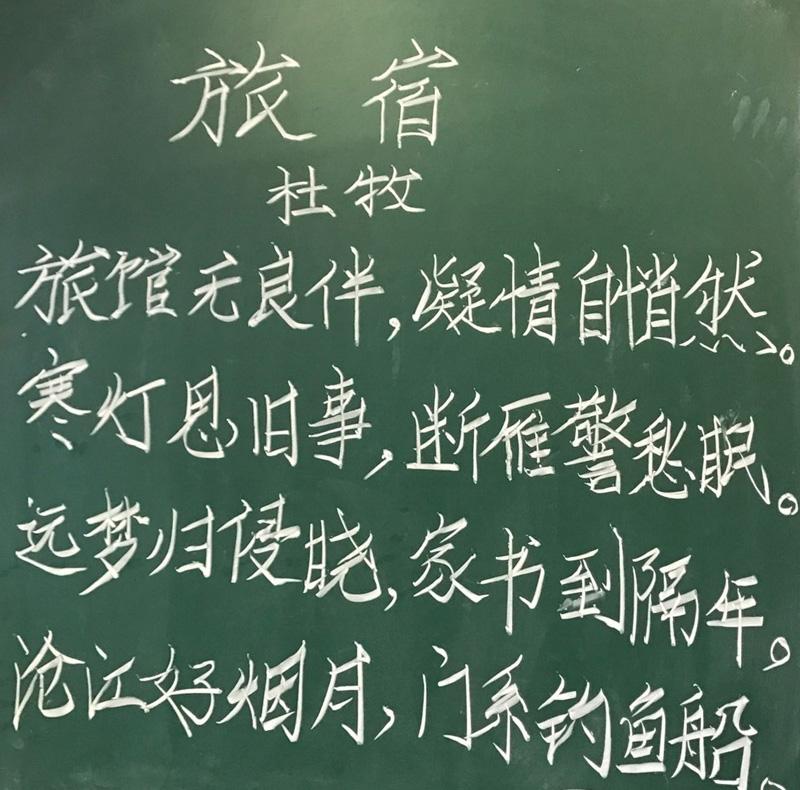 旅宿
杜牧
旅馆无良伴,凝情自悄然。
寒灯思旧事,断雁警愁眠。
远梦归侵晓,家书到隔年。
沧江好烟月,门系钓鱼船。